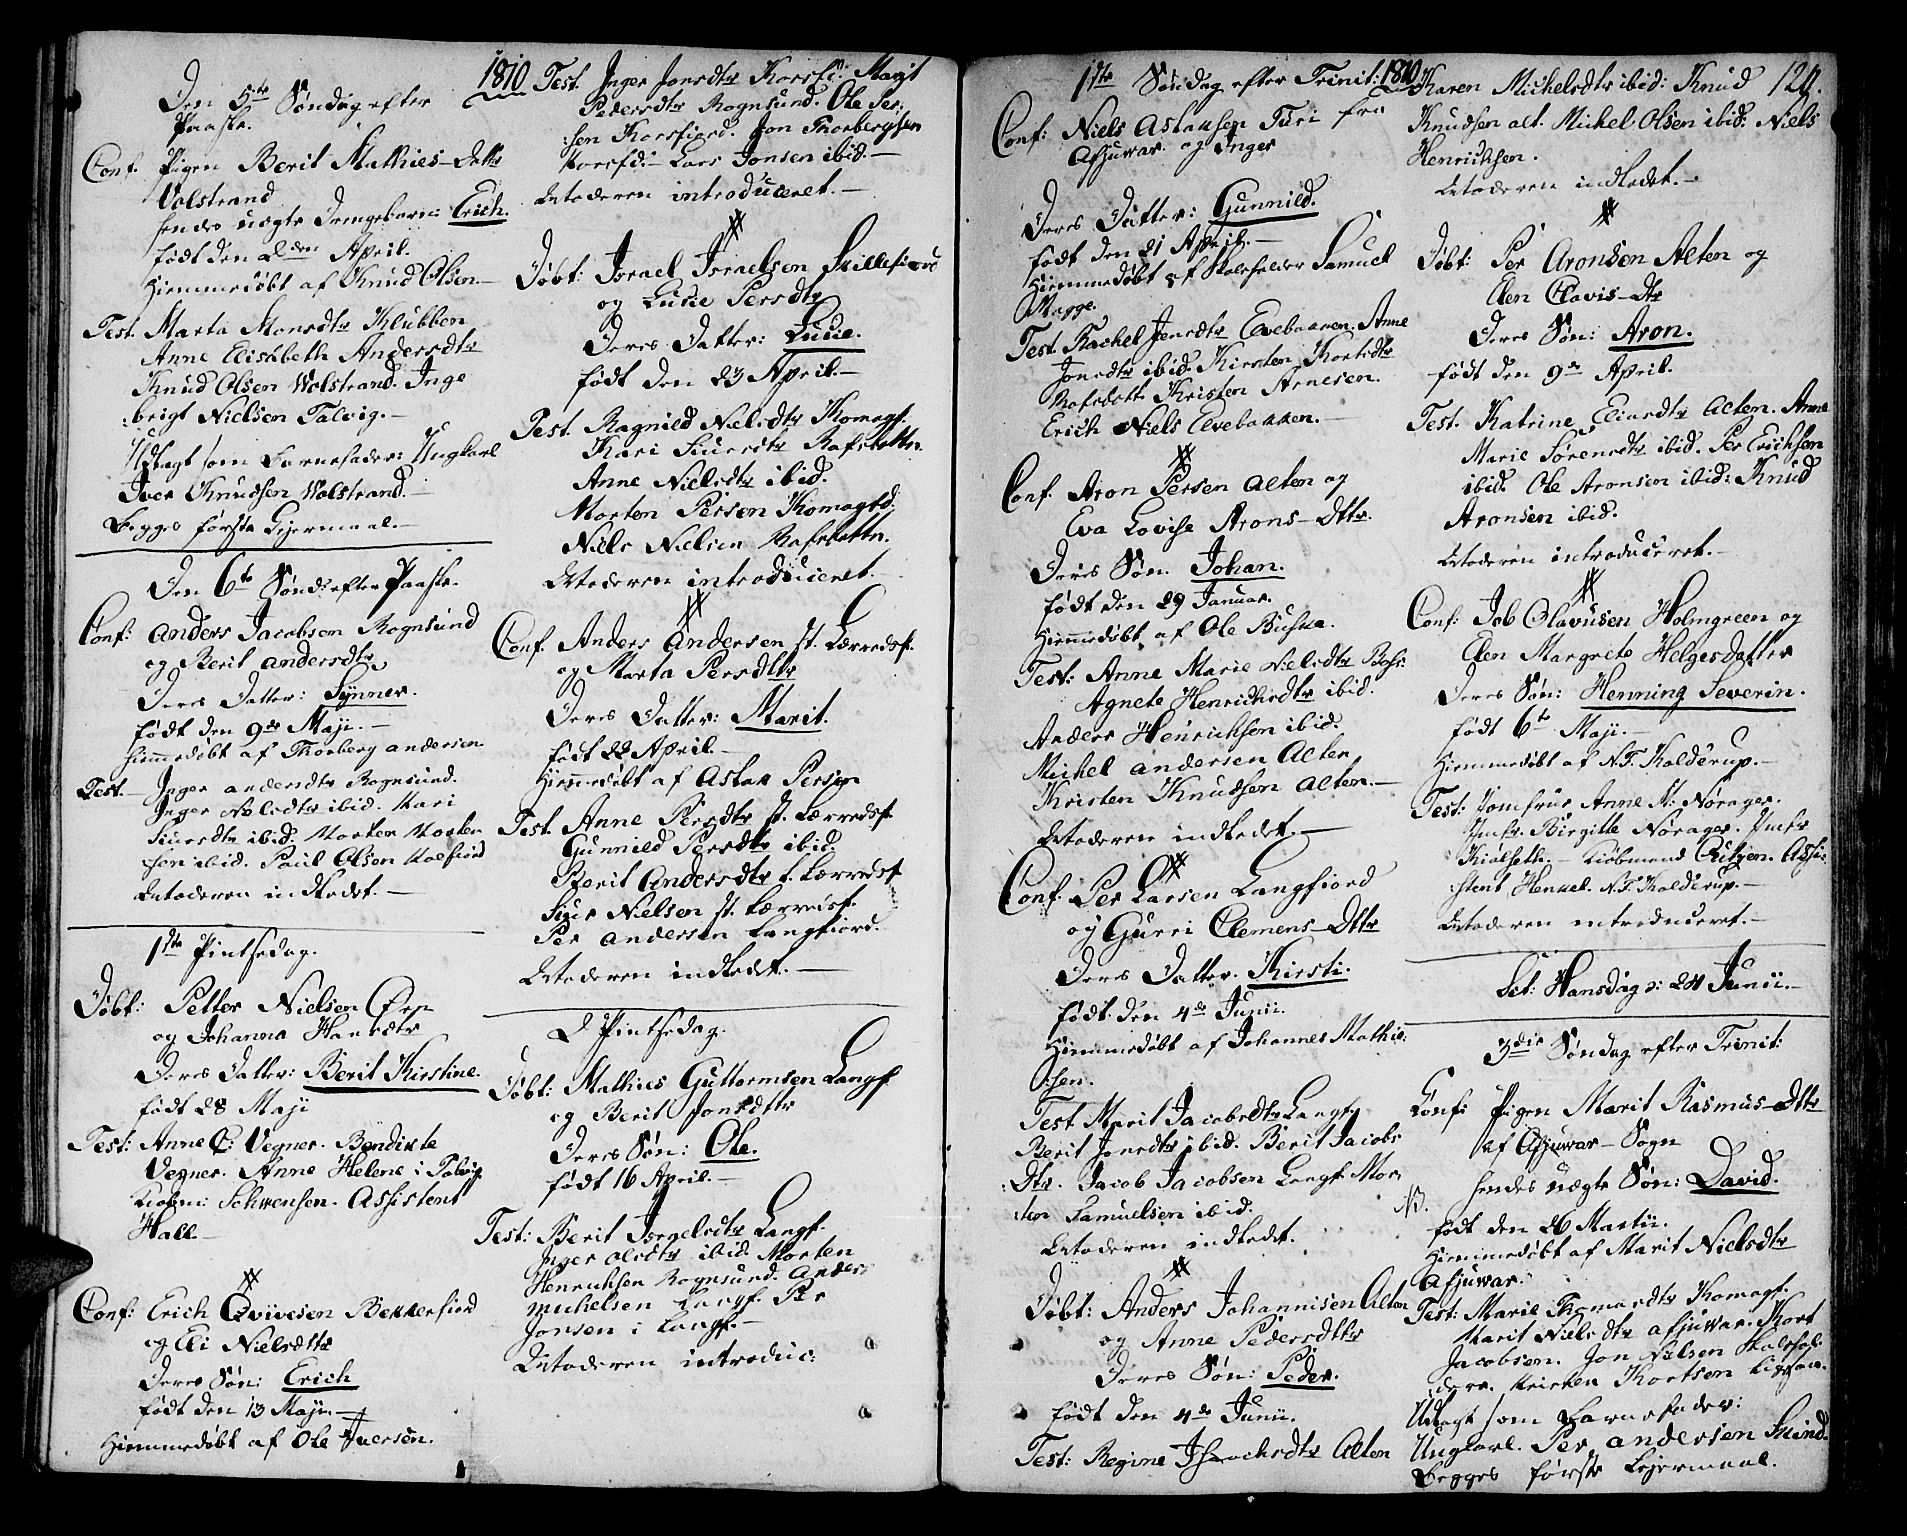 1810
Den 5te Søndag efter
Paaske.
Conf. Pigen Berit Mathies-Dattr
Volstrand
hendes uægte Drengebarn: Erich.
født den 2den April.
Hiemmedøbt af Knud Olsen.
Test. Marta Monsdtr Klubben
Anne Elisabeth Andersdtr
Knud Olsen Wolstrand. Inge
:brigt Nielsen Talvig.-
Udlagt som Barnefader: Ungkarl
Iver Knudsen Wolstrand.-
Begges første Lejermaal.-
Den 6te Sønd: efter Paaske.
Conf: Anders Jacobsen Rognsund
og Berit Andersdtr
Deres Datter: Synner.
født den 9de Maji.-
Hiemmedøbt af Thorberg Andersen
Test.- Inger Andersdtr Rognsund.
Inger Nielsdtr ibid. Kari
Siursdtr ibid. Morten Morten
sen ibid. Poul Olsen Korsfiord
Moderen indledet.-
1ste Pintsedag.
Døbt: Petter Nielsen
og Johanna
Deres Datter: Berit Kirstine.
født 28 Maji
Test: Anne C: Vegner. Bendikte
Vegner. Anne Helene i Talvig
Kiøbm: Schwensen. Assistent
Hall.-
Conf: Erich Qvivesen Bekkerfiord
og Eli Nielsdttr
Deres Søn: Erich
født den 13 Maji.-
Hiemmedøbt af Ole Iversen.
Test. Inger Jonsdtr Korsfi: Marit
Pedersdtr Rognsund. Ole Per:
:sen Korsfiord. Jon Thorbergsen
Korsfd:- Lars Jonsen ibid.-
Moderen introduceret.-
Døbt: Israel Israelsen Skillefiord
og Lusie Persdtr
Deres Datter: Lusie.
født den 23 April.-
Test. Ragnild Nielsdtr Komagf.
Kari Siursdtr Rafsbottn.
Anne Nielsdtr ibid.
Morten Persen Komagfd:
Niels Nielsen Rafsbottn.
Moderen introduceret.
Conf. Anders Andersen st. Lærredsf.
og Marta Persdttr
Deres Datter: Marit.
født 22 April.-
Hiemmedøbt af Aslak Persen
Test. Anne Persdtr st. Lærredsf
Gunnild Persdtr ibid.
Berit Andersdtr st. Lærredsf
Siur Nielsen st. Lærredsf.
Per Andersen Langfiord.
Moderen indledet.-
2 Pintsedag.
Døbt: Mathies Guttormsen Langf.
og Berit Jonsdttr
Deres Søn: Ole.
født 16 April.-
Test: Berit Israelsdtr Langf.
Inger Olsdtr ibid. Morten
Henrichsen Rognsund. Anders
Michelsen Langf. Per
Jonsen i Langf.-
Moderen introduc:
1810
1ste Søndag efter Trinit:
Conf: Niels Aslaksen Turi fra
Afjuvar. og Inger
Deres Datter: Gunnild.
født den 21 April.-
Hiemmedøbt af Skoleholder Samuel
Magge.
Test. Rachel Jensdtr Elvebakken. Anne
Jonsdtr ibid. Kirsten Kortsdtr
Rafsbott. Kristen Arnesen.
Erich Niels Elvebakken.-
Conf. Aron Persen Alten og
Eva Lovise Arons-Dttr.
Deres Søn. Johan.
født den 29 Januar.
Hiemmedøbt af Ole Buska.
Test: Anne Marie Nielsdtr
Agnete Henrichsdtr ibid.
Anders Henrichsen ibid.
Michel Andersen Alten
Kristen Knudsen Alten.-
Moderen indledet.-
Conf. Per Larsen Langfiord
og Gurri Clemens-Dttr
Deres Datter. Kirsti.
født den 4de Junii.
Hiemmedøbt af Johannes Mathie:
:sen.
Test Marit Jacobsdtr Langf.
Berit Jonsdtr ibid. Berit Jacobs
Dtr. Jacob Jacobsen Langf. Mor:
:ten Samuelsen ibid.
Moderen indledet.
Døbt: Anders Johannisen Alten
og Anne Pedersdttr
Deres Søn: Peder.
født den 4de Junii.
Test: Regine Isachsdtr Alten
124.
Karen Michelsdtr ibid: Knud
Knudsen alt. Michel Olsen ibid. Niels
Henrichsen.
Moderen indledet.-
Døbt: Per Aronsen Alten og
Elen Olavis-Dtr
Deres Søn: Aron.
født den 9de April.
Test. Katrine Alten. Anne
Marie Sørensdtr ibid. Per Erichsen
ibid. Ole Aronsen ibid: Knud
Aronsen ibid.
Moderen introduceret.-
Conf: Job Olavusen Holmgreen og
Elen Margrete Helgesdatter
Deres Søn: Henning Severin.
født 6te Maji.-
Hiemmedøbt af N.F. Kolderup.-
Test: Jomfrue Anne M: Nørager.
Jmfr. Birgitte Nørager. Jmfr
Kiølseth.- Kiøbmand Assi:
:stent Henkel. N.F. Kolderup.-
Moderen introduceret.-
Sct: Hansdag ɔ: 24 Junii.-
3die Søndag efter Trinit:
Conf: Pigen Marit Rasmus-Dttr
af Afjuvar-Sogn
hendes uægte Søn: David.
NB.
født den 26 Martii.
Hiemmedøbt af Marit Nielsdtr
Afjuvar.
Test: Marie Thomasdtr Komagf.
Marit Nielsdtr Afjuvar. Kort
Jacobsen. Jon Nielsen Skolehol:
:dere. Kristen Kortsen
Udlagt som Barnefader:
Ungkarl. Per Andersen
Begges første Lejermaal.